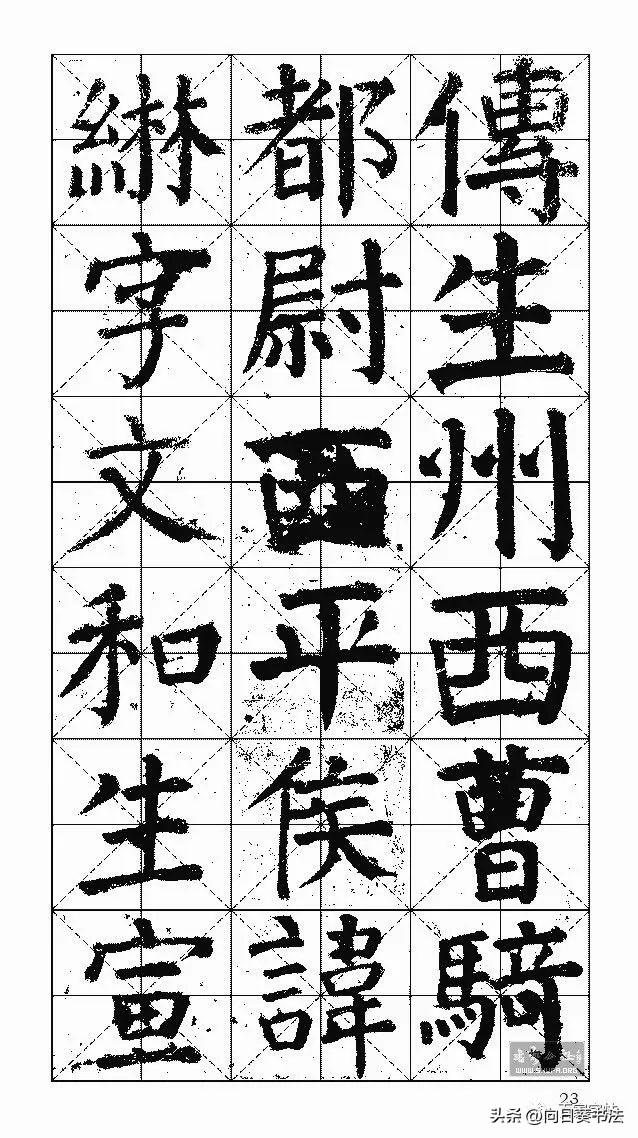 傳生州西曹騎
都尉西平侯諱
綝字文和生宣
23
头条 @向日葵书法